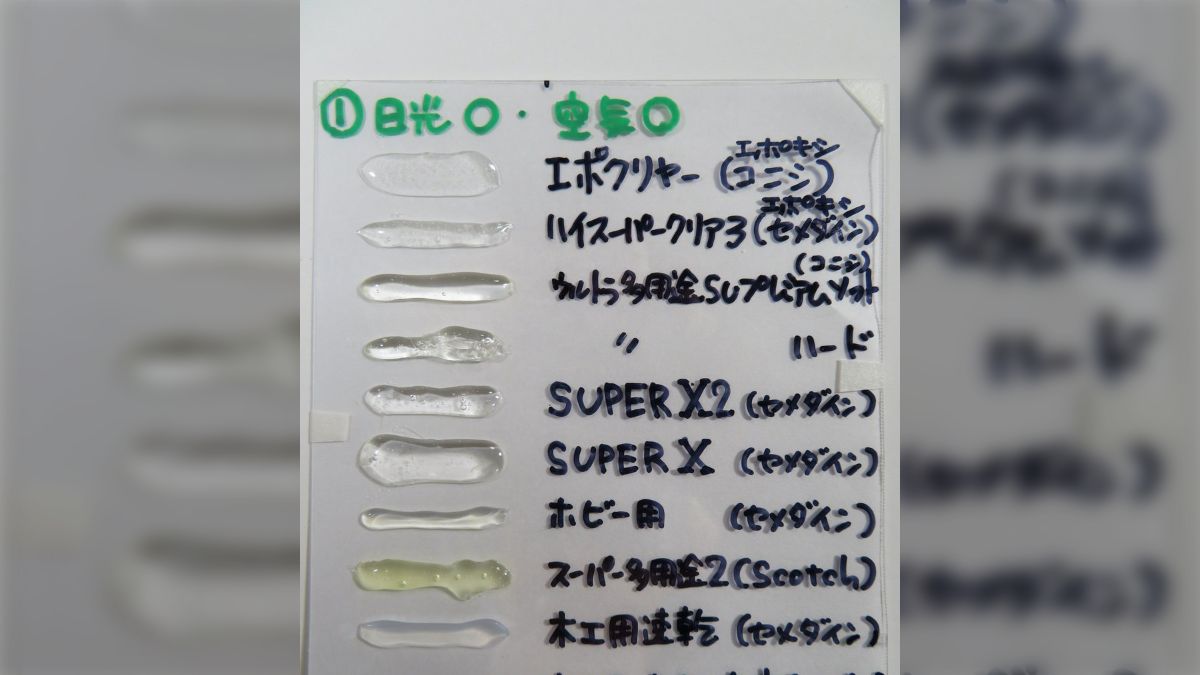 ①日光〇・空気〇
エポキシ
エポクリヤー(コニシ)
エポキシ
ハイスーパークリア3(セメダイン)
(コニシ)
ウルトラ多用途SUプレミアムソフト
〃 ハード
SUPER X2(セメダイン)
SUPER X (セメダイン)
ホビー用 (セメダイン)
スーパー多用途2(Scotch)
木工用速乾(セメダイン)